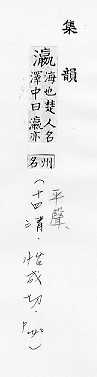 集韻
瀛
海也楚人名
澤中曰瀛亦
州
名
(平聲、
十四清.怡成切.